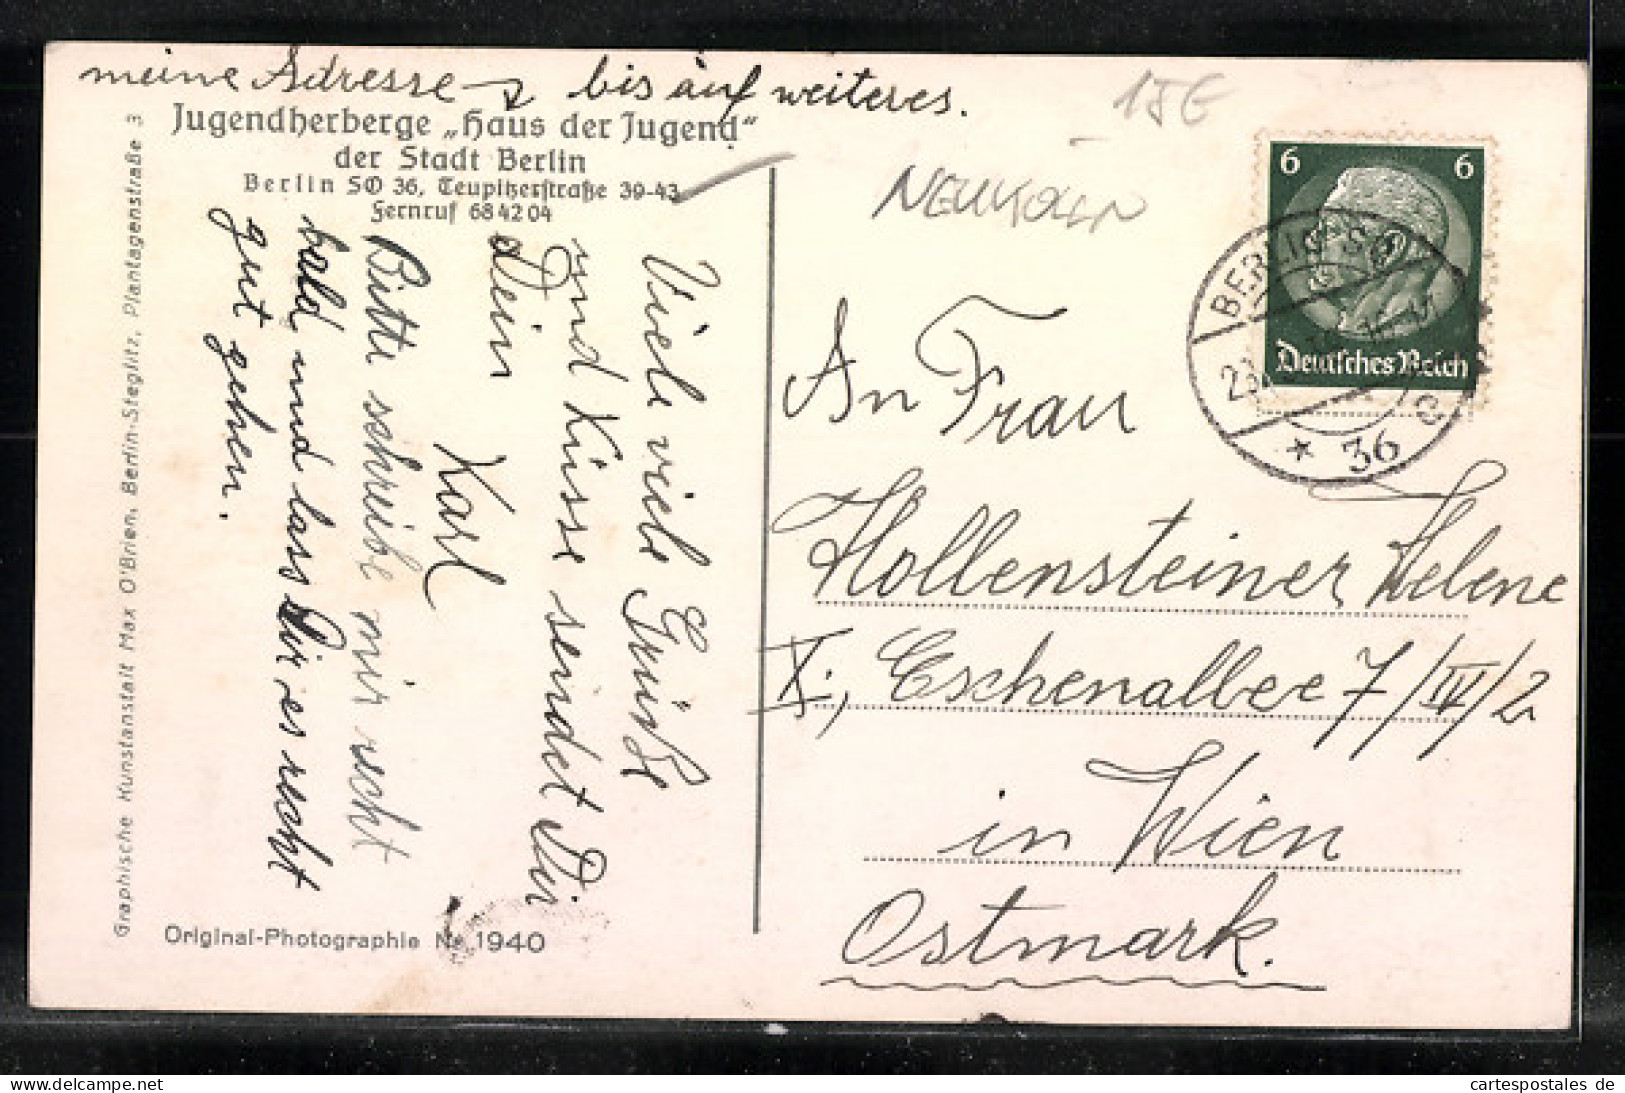 meine Adresse → bis auf weiteres.
Jugendherberge „Haus der Jugend"
der Stadt Berlin
Berlin SO 36, Teupitzerstraße 39-43
Fernruf 68 42 04
Viele viele Grüße
und Küsse sendet Dir
Dein
Karl
Bitte schreibe mir recht
bald und lass Dir es recht
gut gehen.
Graphische Kunstanstalt Max O'Brien, Berlin-Steglitz, Plantagenstraße 3
Original-Photographie No 1940
15€
NEUKÖLLN
6 6
Deutsches Reich
BERLIN SO
36
An Frau
Hollensteiner Helene
X., Eschenallee 7/IV/2
in Wien
Ostmark.
Delcampe.net
cartespostales de